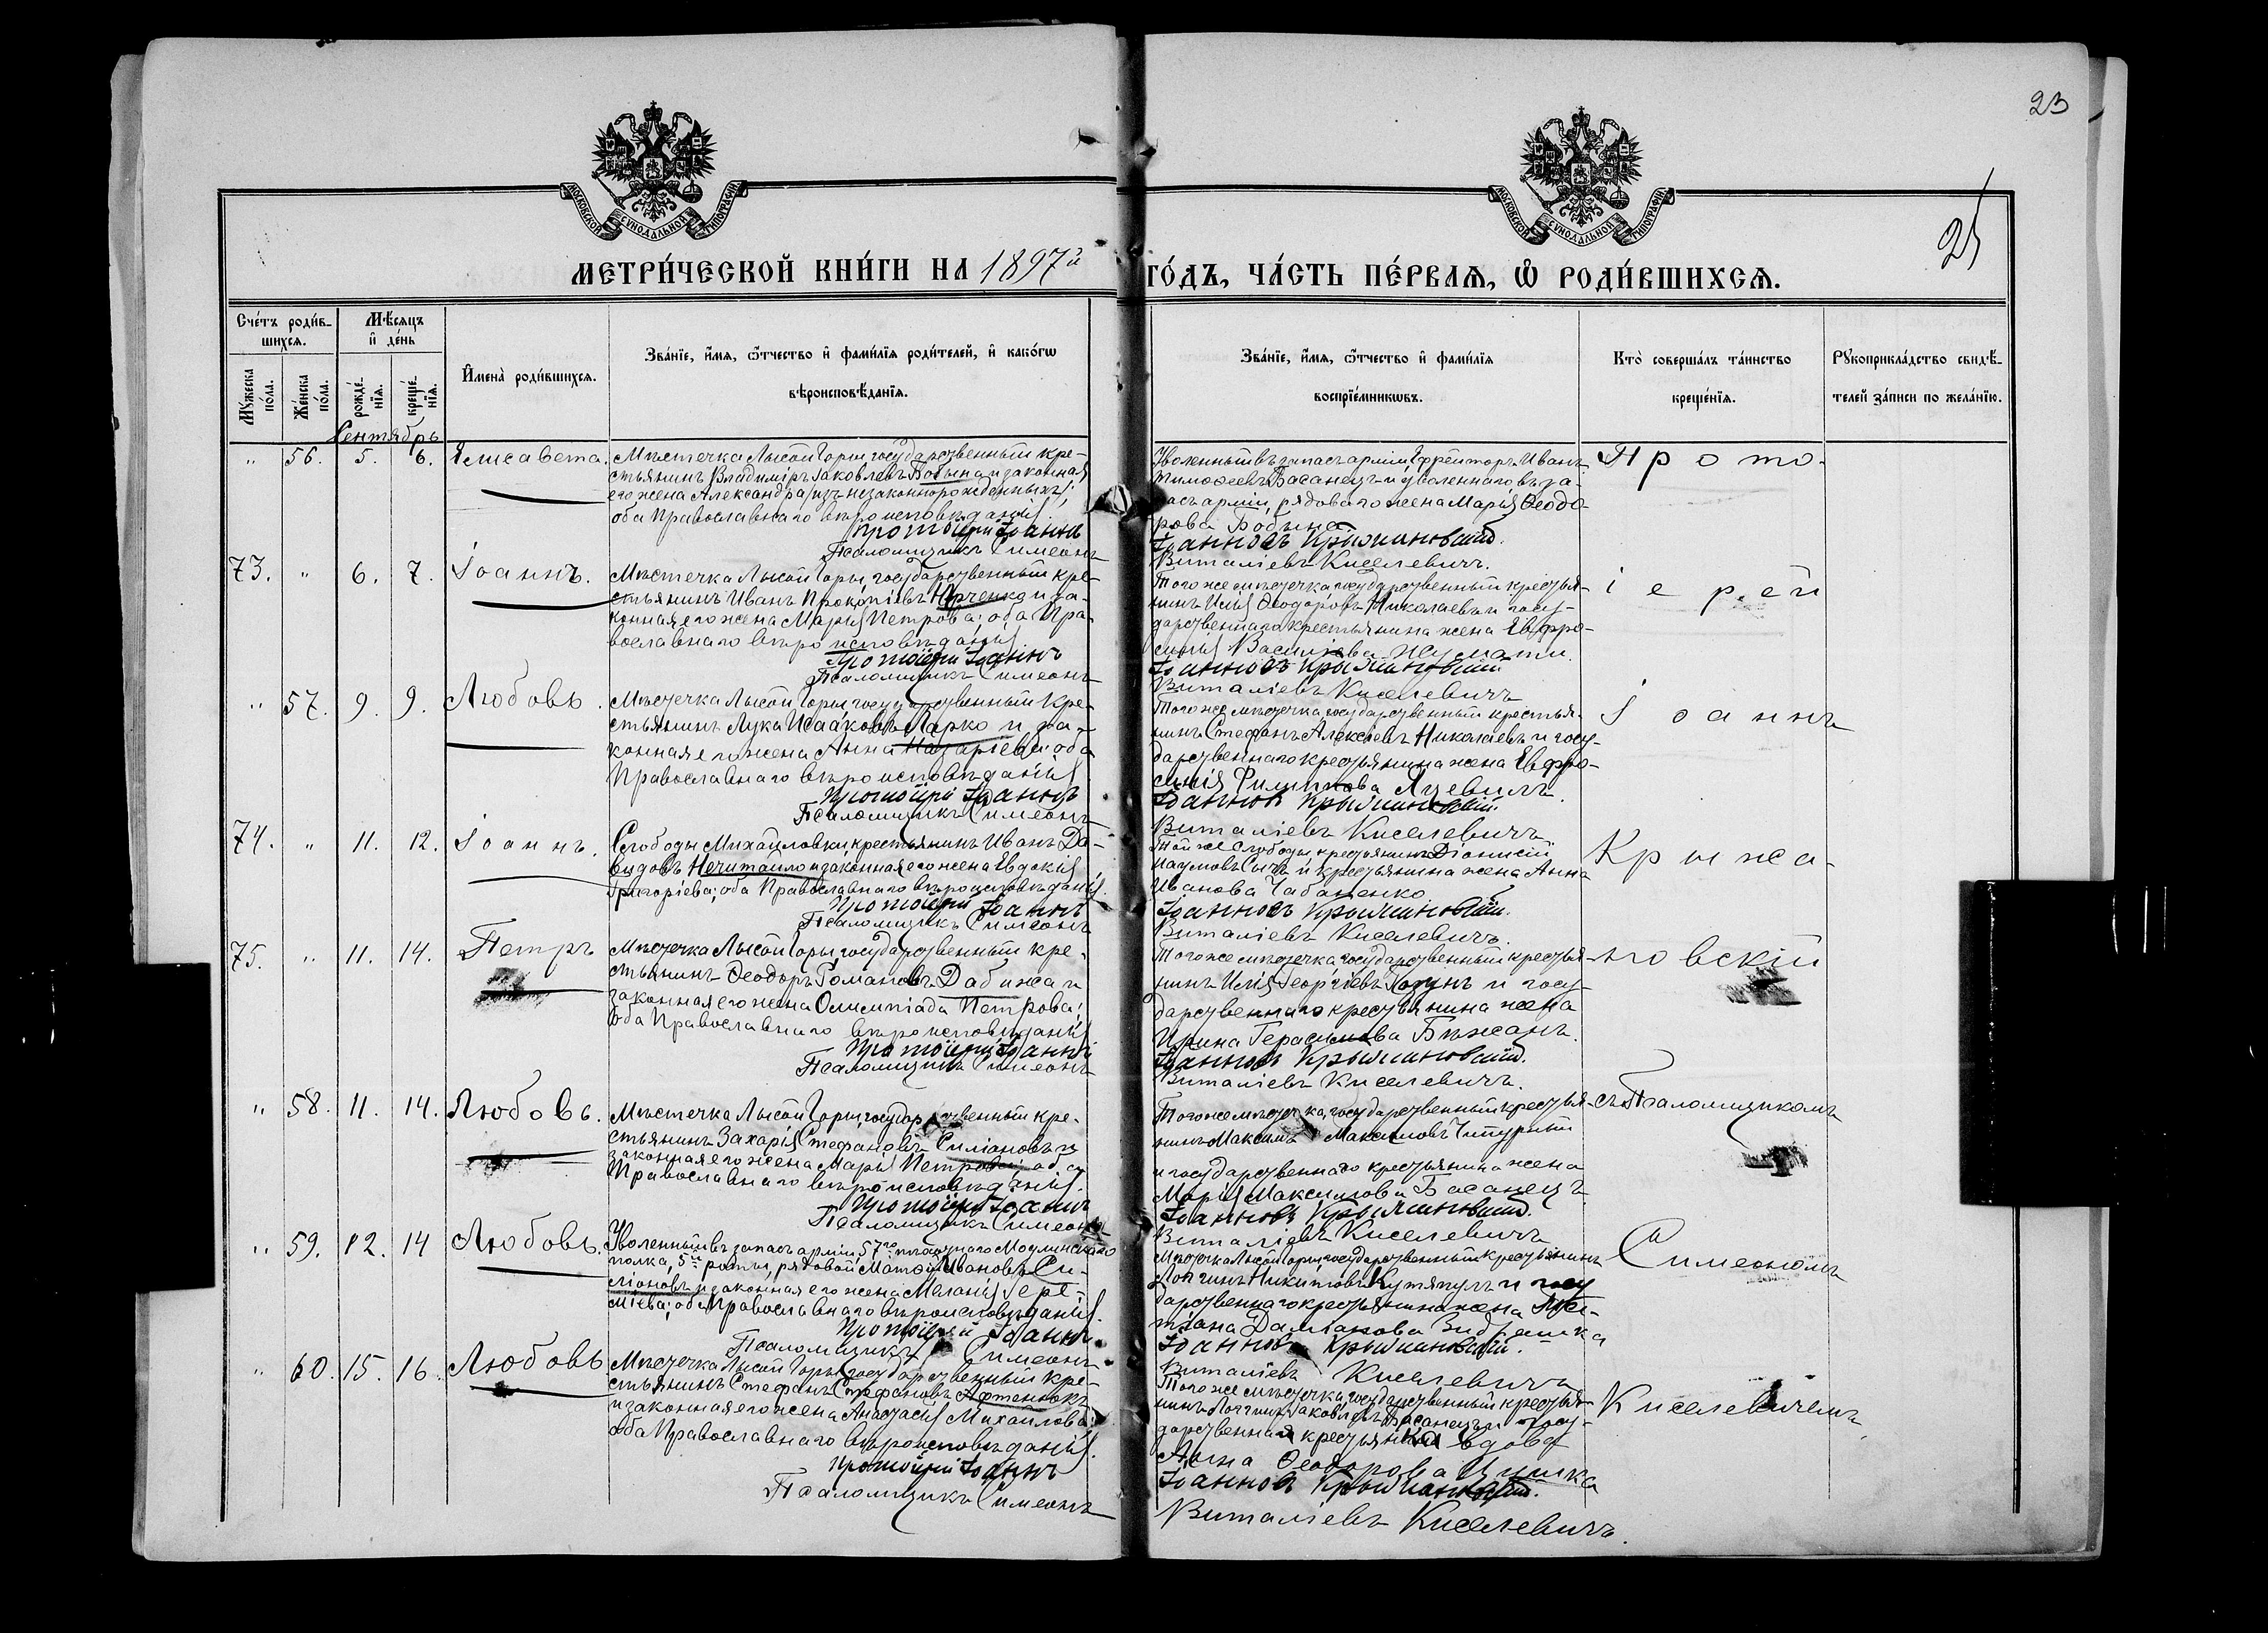 23
25
МОСКОВСКОЙ СѴНОДАЛЬНОЙ ТИПОГРАФІИ
МОСКОВСКОЙ СѴНОДАЛЬНОЙ ТИПОГРАФІИ
МЕТРИ́ЧЕСКОЙ КНИ́ГИ НА 1897й
ГО́ДЪ, ЧА́СТЬ ПЕ́РВАѦ, Ѡ҆ РОДИ́ВШИХСѦ.
Сче́тъ роди́в-
шихсѧ.
Мѣ́сѧцъ
и҆ де́нь
Мꙋ́жеска по́ла.
Же́нска по́ла.
рожде́-
нїѧ.
креще́-
нїѧ.
И҆мена̀ роди́вшихсѧ.
Зва́нїе, и҆́мѧ, ѻ҆́тчество и҆ фами́лїѧ роди́телей, и҆ како́гѡ
вѣроисповѣ́данїѧ.
Зва́нїе, и҆́мѧ, ѻ҆́тчество и҆ фами́лїѧ
воспрїе́мникѡвъ.
Кто̀ соверша́лъ та́инство
креще́нїѧ.
Рꙋкоприкла́дство свидѣ́-
телей за́писи по жела́нїю.
Сентябрь
" 56. 5. 6. Елисавета.
Мѣстечка Лысой Горы, государственный кре-
стьянинъ Владиміръ Іаковлевъ Бобына и законная
его жена Александра (изъ незаконнорожденныхъ);
оба Православнаго вѣроисповѣданія.
Протоіерей Іоаннъ
Псаломщикъ Симеонъ
Уволенный въ запасъ арміи, Ефрейторъ Иванъ
Тимоѳеевъ Басанецъ и уволеннаго въ за-
пасъ арміи, рядоваго жена Марія Ѳеодо-
рова Бобына
Іоанновъ Крыжановскій.
Виталіевъ Киселевичъ.
Прото-
73. " 6. 7. Іоаннъ.
Мѣстечка Лысой Горы, государственный кре-
стьянинъ Иванъ Прокопіевъ и за-
конная его жена Марія Петрова; оба Пра-
вославнаго вѣроисповѣданія.
Протоіерей Іоаннъ
Псаломщикъ Симеонъ
Того же мѣстечка, государственный крестья-
нинъ Илія Ѳеодоровъ Николаевъ и госу-
дарственнаго крестьянина жена Евфро-
синія Василіева
Іоанновъ Крыжановскій
Виталіевъ Киселевичъ
іерей
" 57. 9. 9. Любовь.
Мѣстечка Лысой Горы, государственный кре-
стьянинъ Лука Исааковъ Ларко и за-
конная его жена Анна Назаріева; оба
Православнаго вѣроисповѣданія
Протоіерей Іоаннъ
Псаломщикъ Симеонъ
Того же мѣстечка, государственный крестья-
нинъ Стефанъ Алексіевъ Николаевъ и госу-
дарственнаго крестьянина жена Евфро-
синія Филиппова
Іоанновъ Крыжановскій.
Виталіевъ Киселевичъ
Іоаннъ
74. " 11. 12. Іоаннъ.
Слободы Михайловки, крестьянинъ Иванъ Да-
видовъ Нечитайло и законная его жена Евдокія
Григоріева; оба Православнаго вѣроисповѣданія.
Протоіерей Іоаннъ
Псаломщикъ Симеонъ
Той же Слободы крестьянинъ Діонисій
Наумовъ Сычъ и крестьянина жена Анна
Иванова Чабаненко
Іоанновъ Крыжановскій.
Виталіевъ Киселевичъ.
Крыжа-
75. " 11. 14. Петръ
Мѣстечка Лысой Горы, государственный кре-
стьянинъ Ѳеодоръ Романовъ Дабижа и
законная его жена Олимпіада Петрова;
оба Православнаго вѣроисповѣданія
Протоіерей Іоаннъ
Псаломщикъ Симеонъ
Того же мѣстечка государственный крестья-
нинъ Илія Георгіевъ и госу-
дарственнаго крестьянина жена
Ирина Герасимова Бѣжанъ.
Іоанновъ Крыжановскій.
Виталіевъ Киселевичъ.
новскій
" 58. 11. 14. Любовь.
Мѣстечка Лысой Горы, государственный кре-
стьянинъ Захарія Стефановъ Силіановъ и
законная его жена Марія Петрова; оба
Православнаго вѣроисповѣданія.
Протоіерей Іоаннъ
Псаломщикъ Симеонъ
Того же мѣстечка, государственный крестья-
нинъ Максимъ Максимовъ Чипурный
и государственнаго крестьянина жена
Марія Максимова Басанецъ
Іоанновъ Крыжановскій.
Виталіевъ Киселевичъ
съ Псаломщикомъ
" 59. 12. 14 Любовь.
Уволенный въ запасъ арміи, 57го пѣхотнаго Модлинскаго
полка, 5й роты, рядовой Матѳій Ивановъ Си-
ліановъ и законная его жена Меланія Іере-
міева; оба Православнаго вѣроисповѣданія.
Протоіерей Іоаннъ
Псаломщикъ Симеонъ
Мѣстечка Лысой Горы, государственный крестьянинъ
Логгинъ Никитовъ и госу
дарственнаго крестьянина жена
Даміанова
Іоанновъ Крыжановскій.
Виталіевъ Киселевичъ
Симеономъ
" 60. 15. 16. Любовь
Мѣстечка Лысой Горы, государственный кре-
стьянинъ Стефанъ Стефановъ Афтенюкъ
и законная его жена Анастасія Михаилова;
оба Православнаго вѣроисповѣданія.
Протоіерей Іоаннъ
Псаломщикъ Симеонъ
Того же мѣстечка, государственный крестья-
нинъ Логгинъ Іаковлевъ Басанецъ и госу-
дарственная крестьянка вдова
Анна Ѳеодорова
Іоанновъ Крыжановскій.
Виталіевъ Киселевичъ.
Киселевичемъ